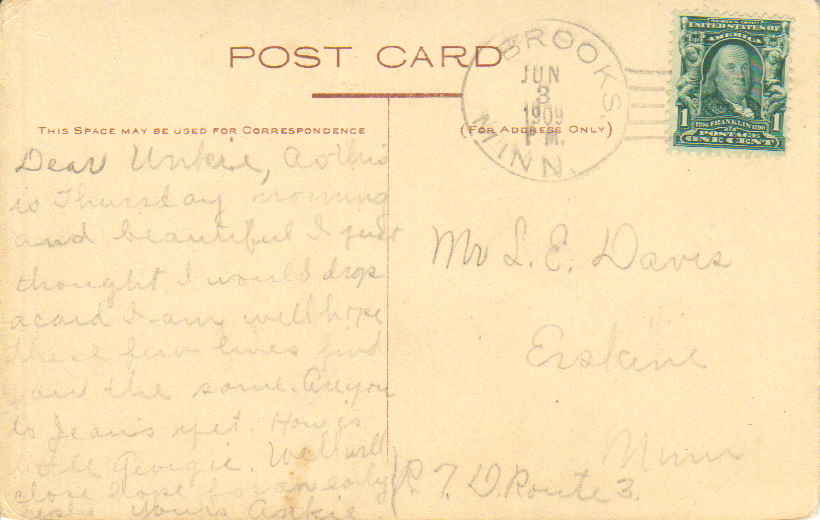 POST CARD
THIS SPACE MAY BE USED FOR CORRESPONDENCE
(FOR ADDRESS ONLY)
BROOKS,
JUN
3
1909
P M.
MINN.
UNITED STATES OF
AMERICA
1 1
FRANKLIN
POSTAGE
ONE CENT
Dear Unkie, As this
is Thursday morning
and beautiful I just
thought I would drop
a card I am well hope
these few lines find
you the same. Are you
yet. How is
Georgie. Well will
close hope for an early
Yours
Mr L. E. Davis
Erskine
Minn
R. F. D. Route 3.